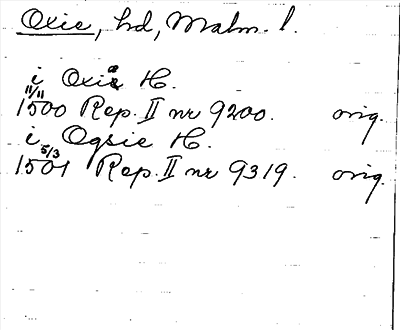 Oxie, hd, Malm. l.
i Oxie H.
1500 11/11 Rep. II nr 9200. orig.
i Ogsie H.
1501 5/3 Rep. II nr 9319. orig.